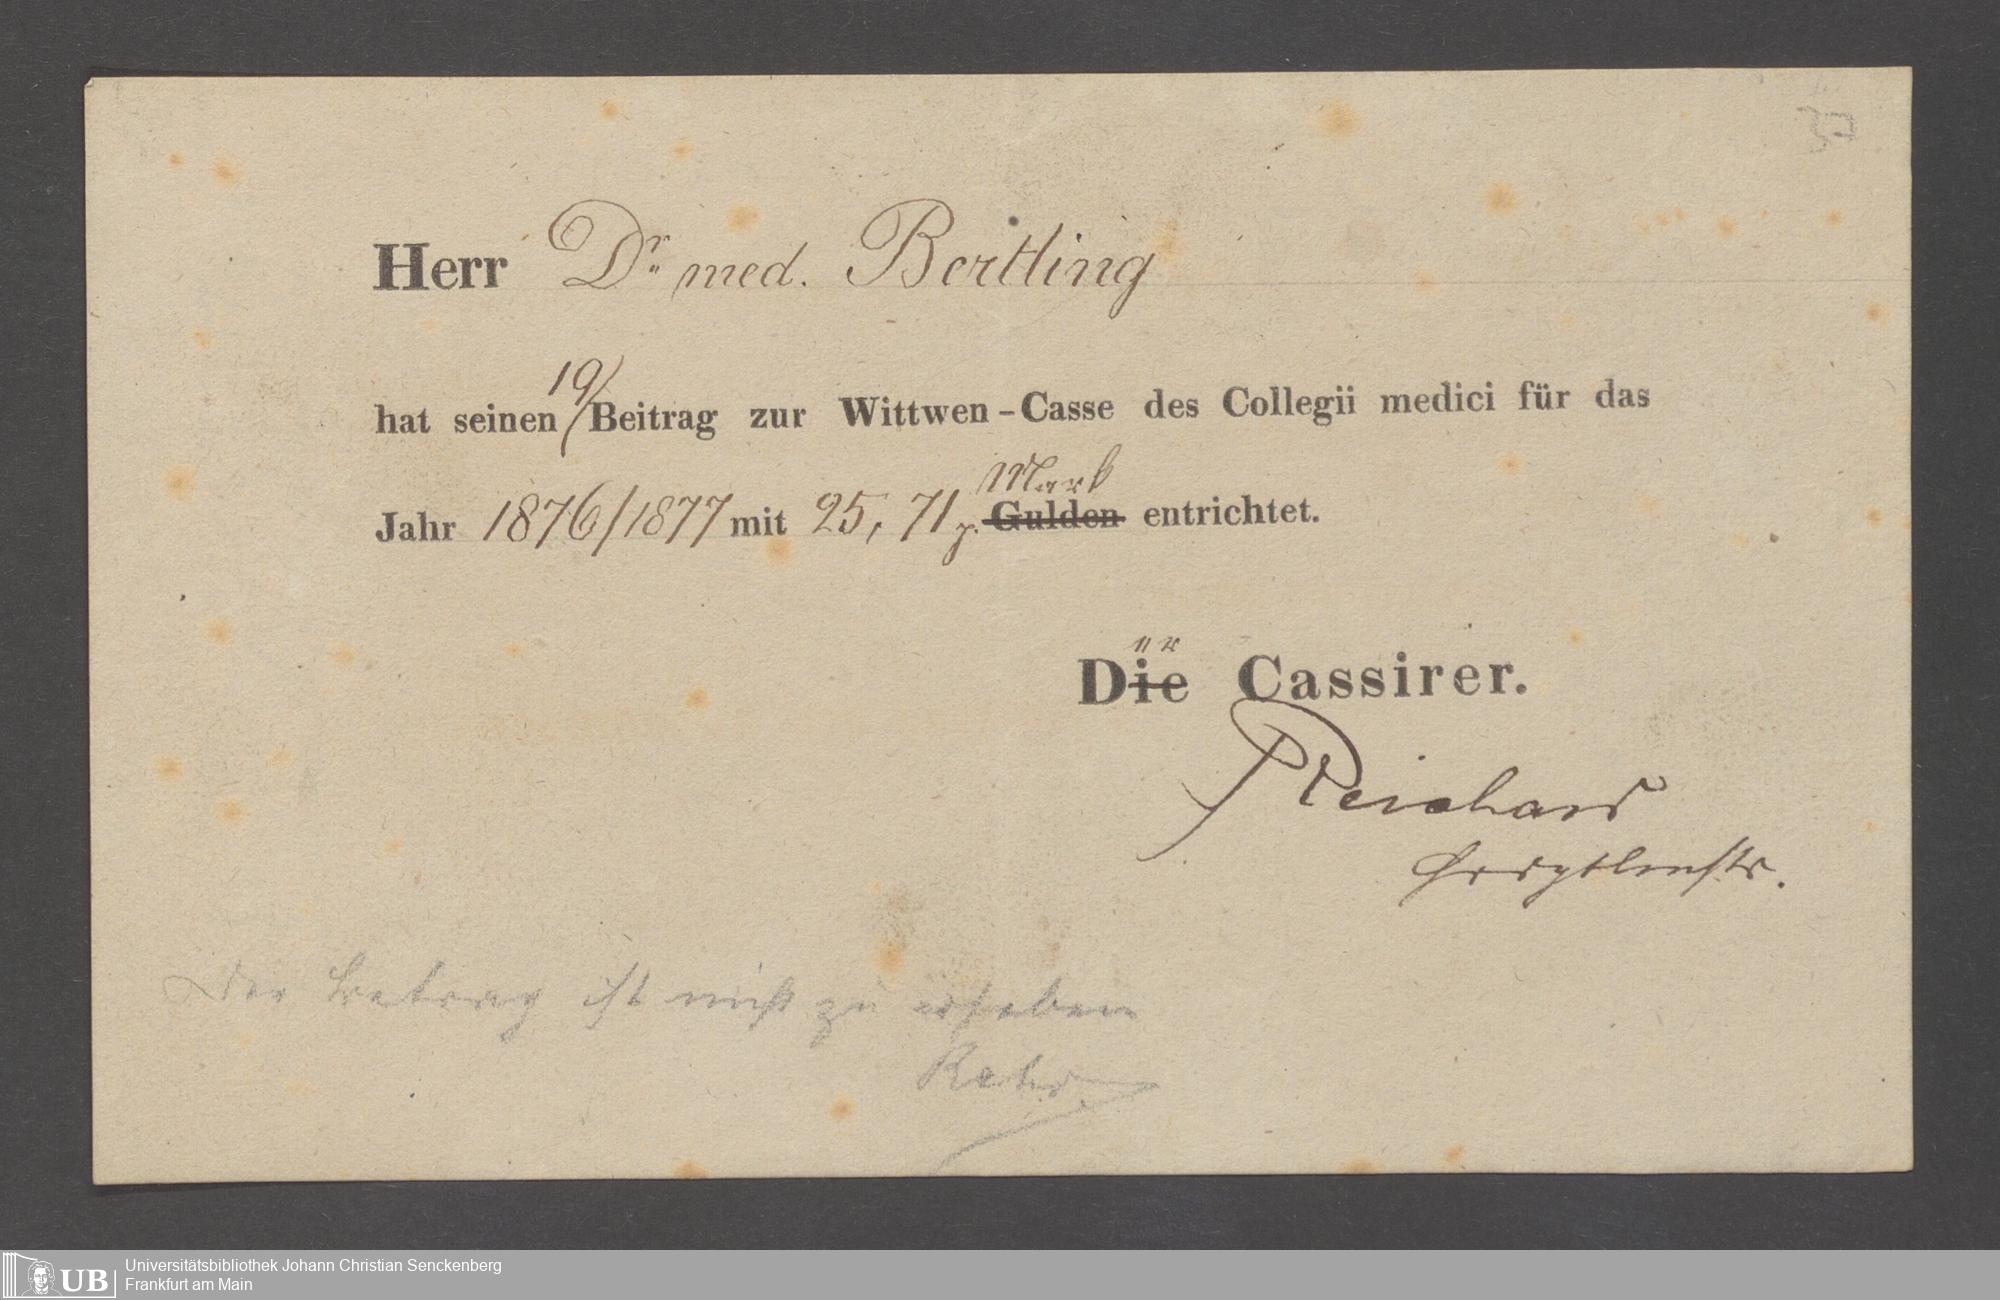 Herr Dr. med. Bertling
hat seinen 19/ Beitrag zur Wittwen-Casse des Collegii medici für das
Jahr 1876/1877 mit 25,71 p. Mark Gulden entrichtet.
Die er Cassirer.
Reichard
Der Betrag ist nicht zu erheben
UB
Universitätsbibliothek Johann Christian Senckenberg
Frankfurt am Main